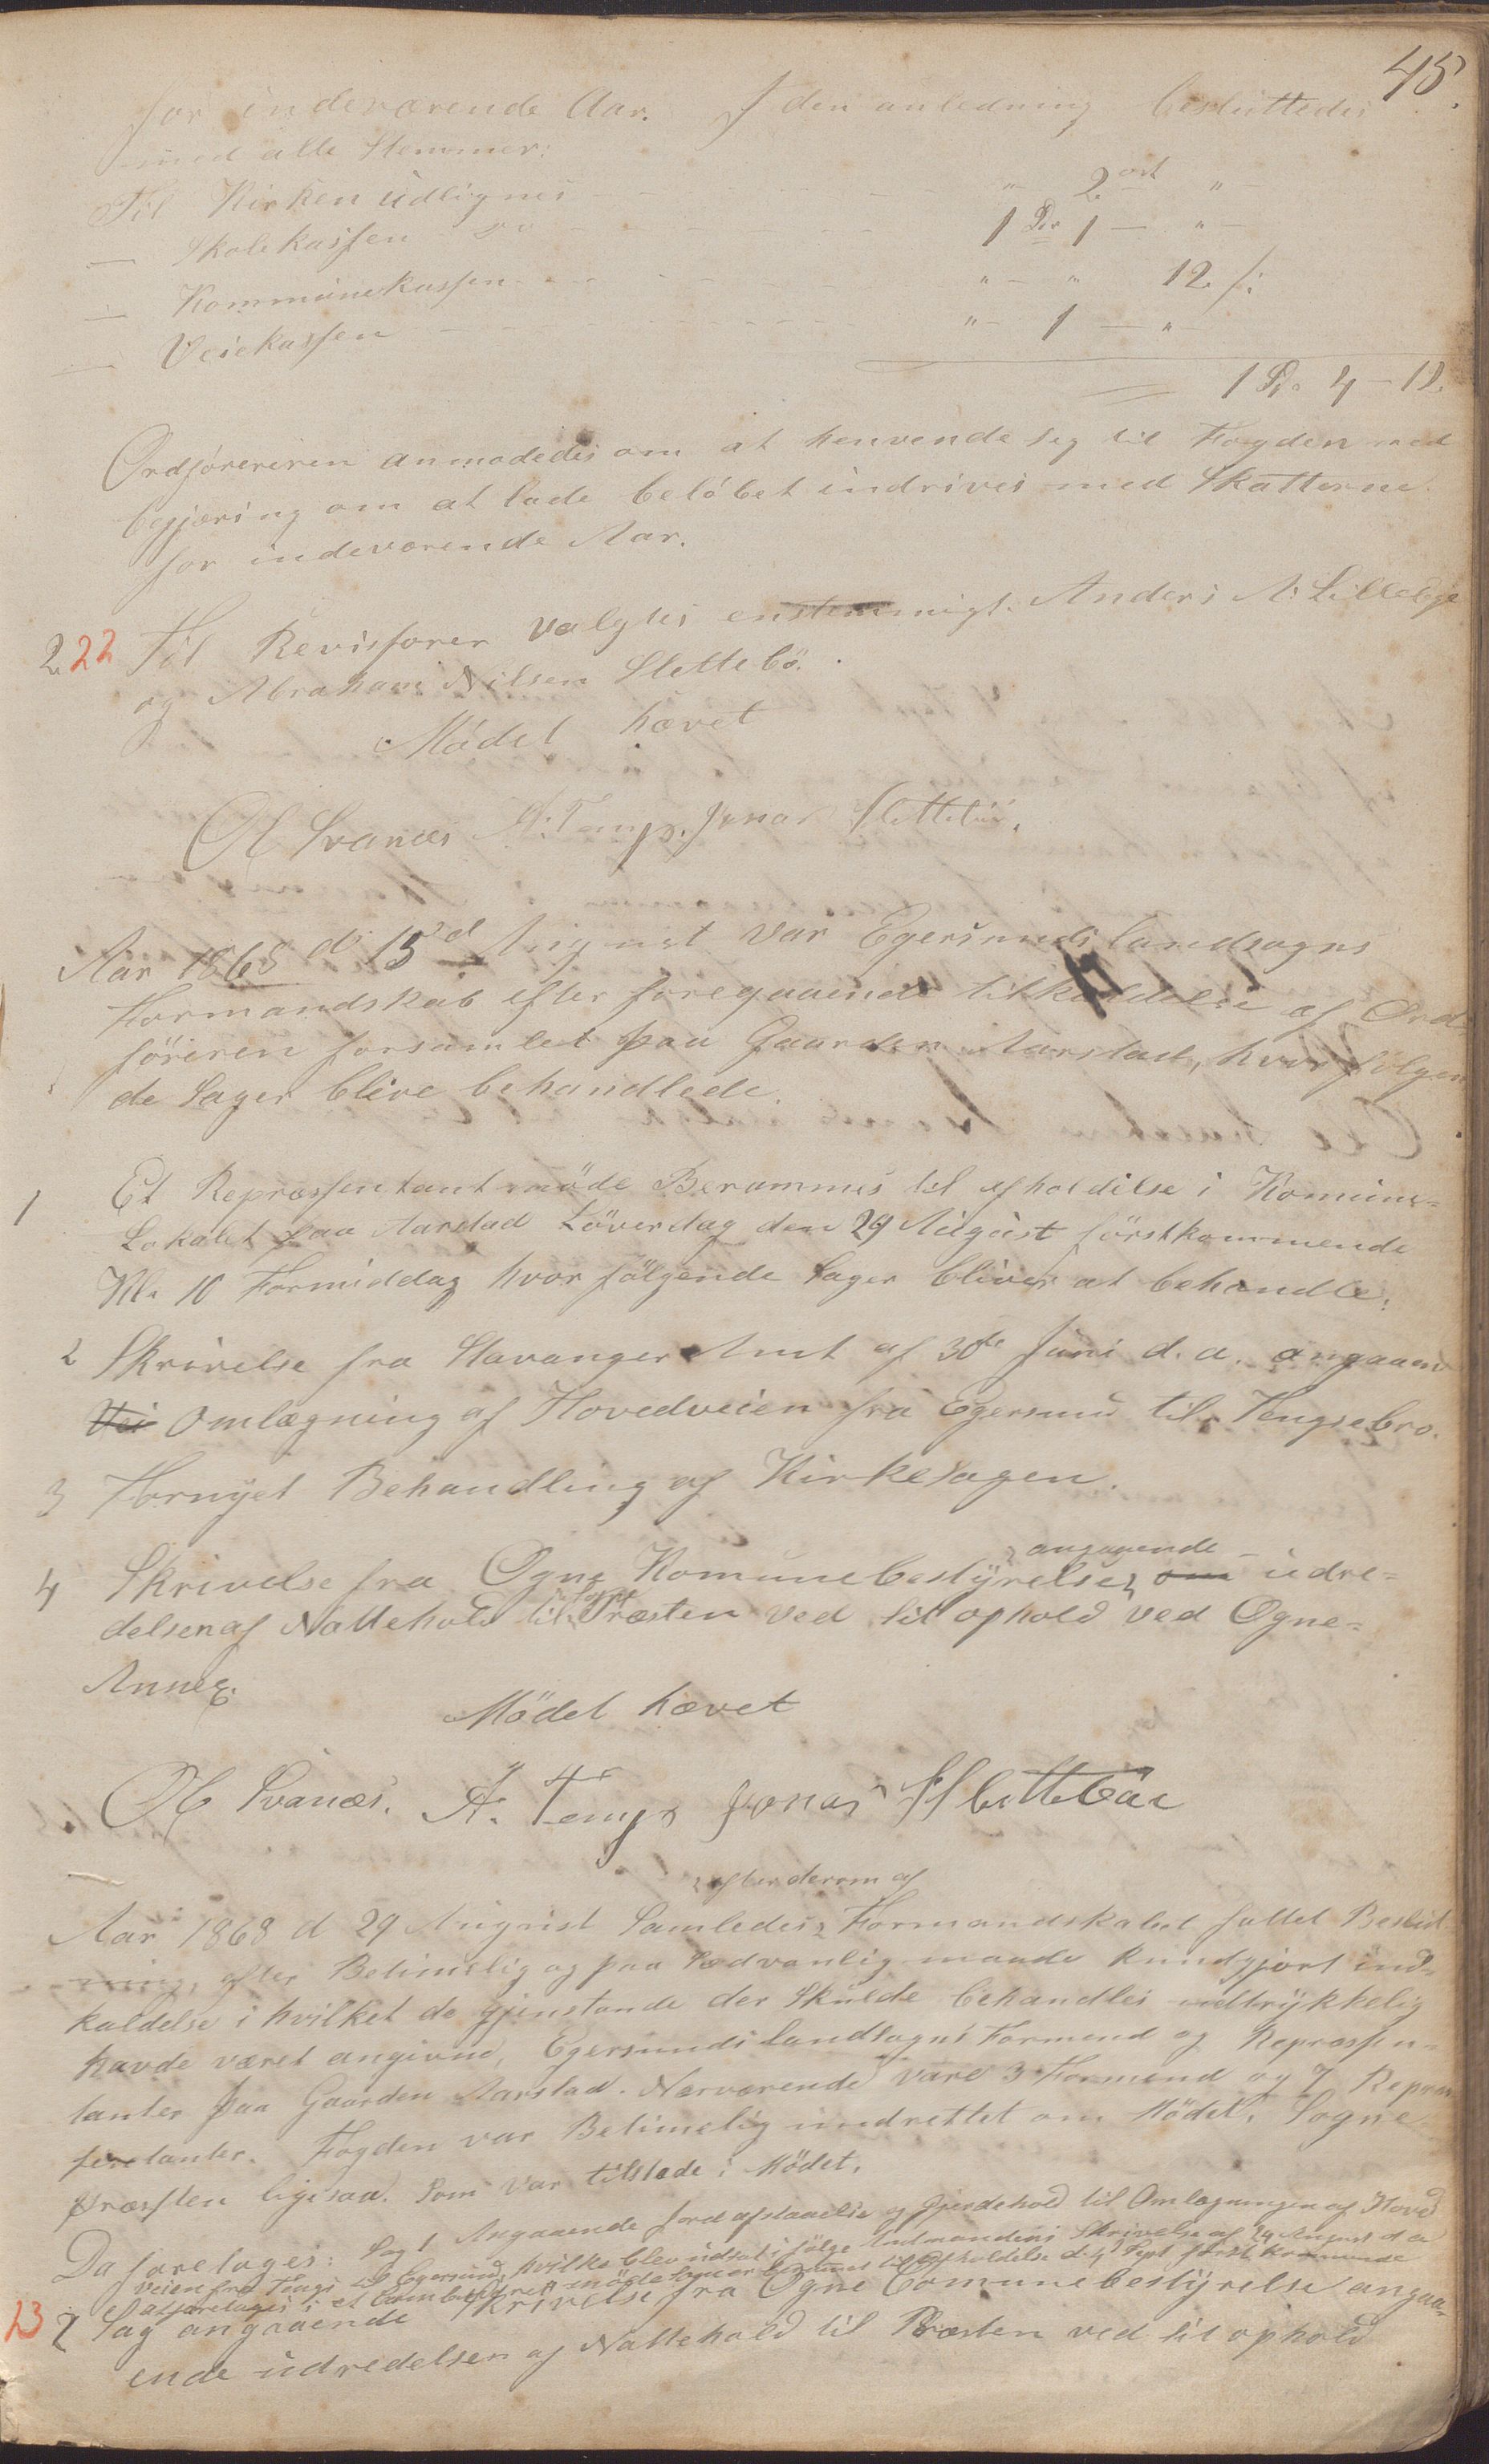 45.
for indeværende Aar. I den anledning besluttedes
med alle Stemmer:
Til Kirken udlignes - - - " 2 ort " -
— Skolekassen do - - - 1 Sp 1 — " -
— Kommunekassen - - - " - " 12 s:
— Veiekassen - - - " - 1 — " -
1 Sp. 4 - 12.
Ordføreren anmodedes om at henvende sig til Fogden med
begjæring om at lade beløbet indrives med Skatterne
for indeværende Aar.
2. 22 Til Revisforer valgtes enstemmigt. Anders A:
og Abraham Nilsen Slettebö.
Mödet hævet
O Svanæs A: Tengs. Jonas Slettebö.
Aar 1868 d. 15d August var Egersunds landsogns
Formandskab efter foregaaende tilkaldelse af Ord-
föreren forsamlet paa Gaarden Aarstad, hvor fölgen
de Sager blive behandlede.
1 Et Repræssentantmöde Berammes til afholdelse i Komune-
Lokalet paa Aarstad Löverdag den 29 August förstkommende
Kl. 10 Formiddag hvor fölgende Sager bliver at behandle:
2 Skrivelse fra Stavanger Amt af 30te Juni d. a. angaaend
Vei Omlægning af Hovedveien fra Egersund til Tengsebro.
3 Fornyet Behandling af Kirkesagen.
4 Skrivelse fra Ogne Komunebestyrelse angaaende om udre-
delsen af Nattehold til Sogne Præsten ved sit ophold ved Ogne-
Annex.
Mödet hævet
O Svanæs. A. Tengs Jonas Slettebö
efter derom af
Aar 1868 d 29 August Samledes Formandskabet fattet Beslut
ning, efter Betimelig og paa Sædvanlig maade kundgjort ind-
kaldelse i hvilket de gjenstande der Skulde behandles udtrykkelig
havde været angivne, Egersunds Landsogns Formænd og Repræssen-
tanter paa Gaarden Aarstad. Nærværende vare 3 Formænd og 7 Repræ
sentanter. Fogden var Betimelig underrettet om Mödet. Sogne
præsten ligesaa. Som var tilstede i Mödet.
Da foretoges: Sag 1 Angaaende Jordafstaaelse og Gjerdehold til Omlægningen af Hoved
veien fra Tengs til Egersund, hvilke blev udsat i fölge Amtmandens Skrivelse af 24 August d a
at foretages i et möde som er berammet til Afholdelse d. 4 Sept förstkommende
23 2 Sag angaaende Skrivelse fra Ogne Comunebestyrelse angaa-
ende udredelsen af Nattehold til Præsten ved sit ophold